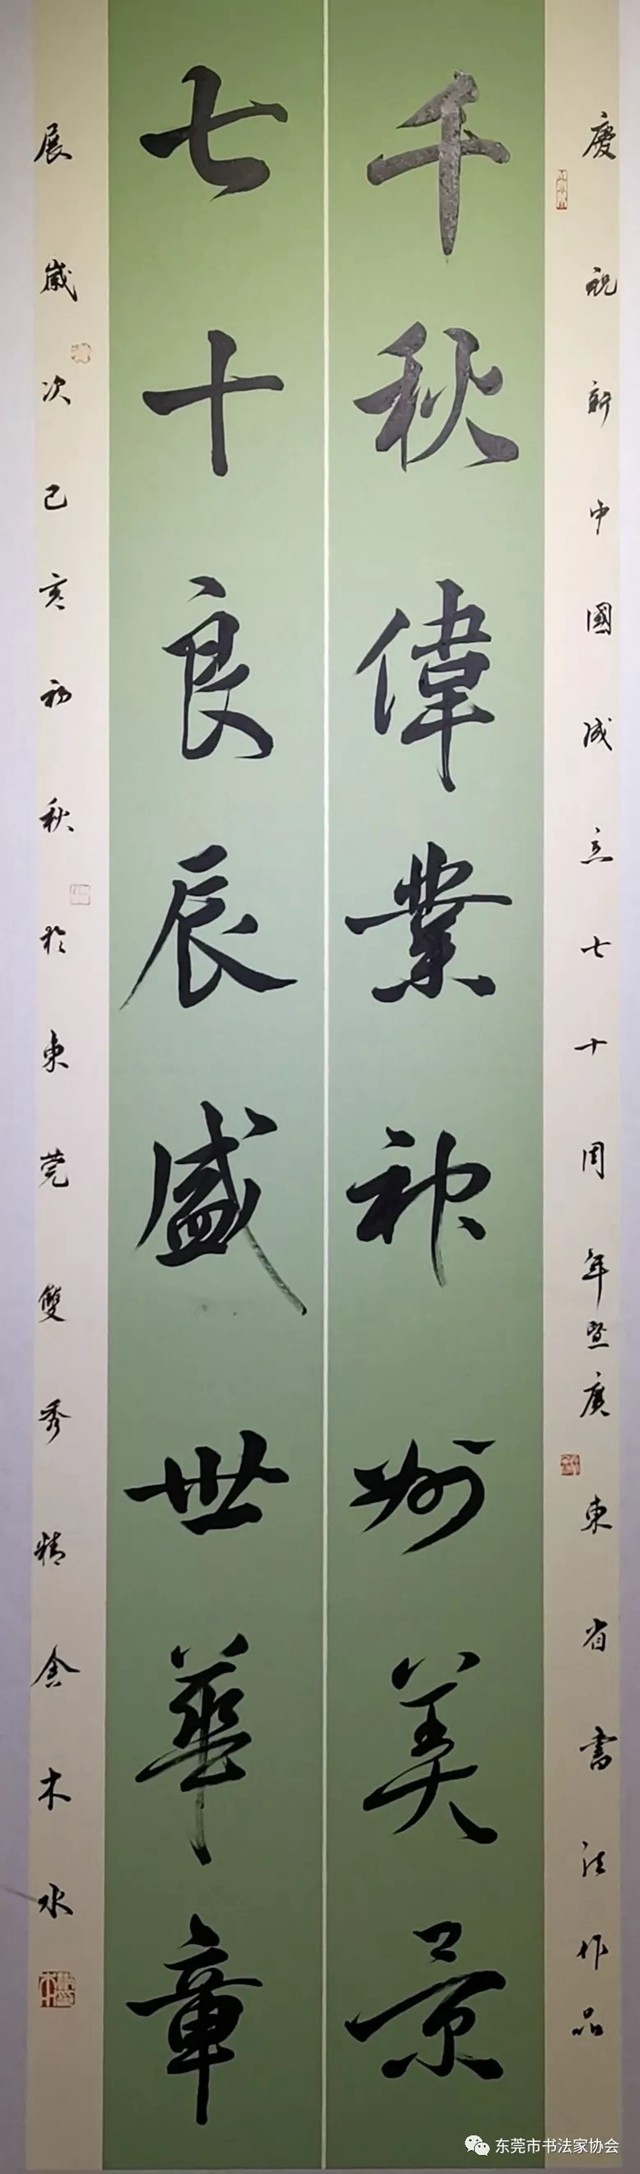 慶祝新中國成立七十周年暨廣東省書法作品
千秋偉業神州美景
七十良辰盛世華章
展歲次己亥初秋於東莞雙秀精舍木水
东莞市书法家协会